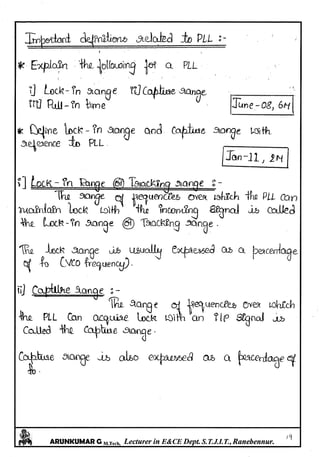 Important definitions related to PLL :-
* Explain the following for a PLL
i) Lock-in range ii) Capture range
iii) Pull-in time
June-08, 6M
* Define lock-in range and capture range with
reference to PLL.
Jan-11, 2M
i] Lock-in Range (or) Tracking range :-
The range of frequencies over which the PLL can
maintain lock with the incoming signal is called
the Lock-in range (or) Tracking range.
The lock range is usually expressed as a percentage
of fo (VCO frequency).
ii) Capture range :-
The range of frequencies over which
the PLL can acquire lock with an i/p signal is
called the capture range.
Capture range is also expressed as a percentage of
fo.
ARUNKUMAR G M.Tech, Lecturer in E&CE Dept. S.T.J.I.T., Ranebennur.
19